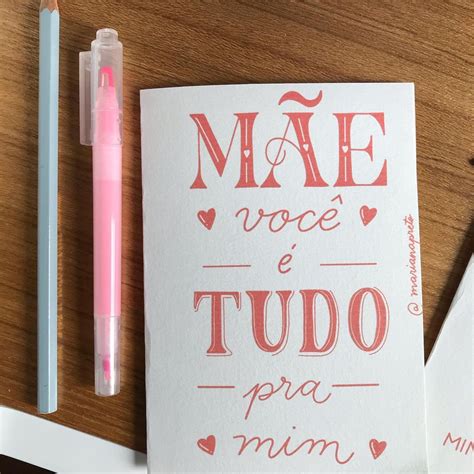 MÃE
você
é
TUDO
pra
mim
@marianapreto
MIN